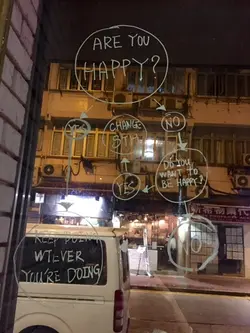 ARE YOU
HAPPY?
YES
NO
CHANGE
DO YOU
WANT TO
BE HAPPY?
YES
NO
KEEP DOIN'
WTEVER
YOU'RE DOING